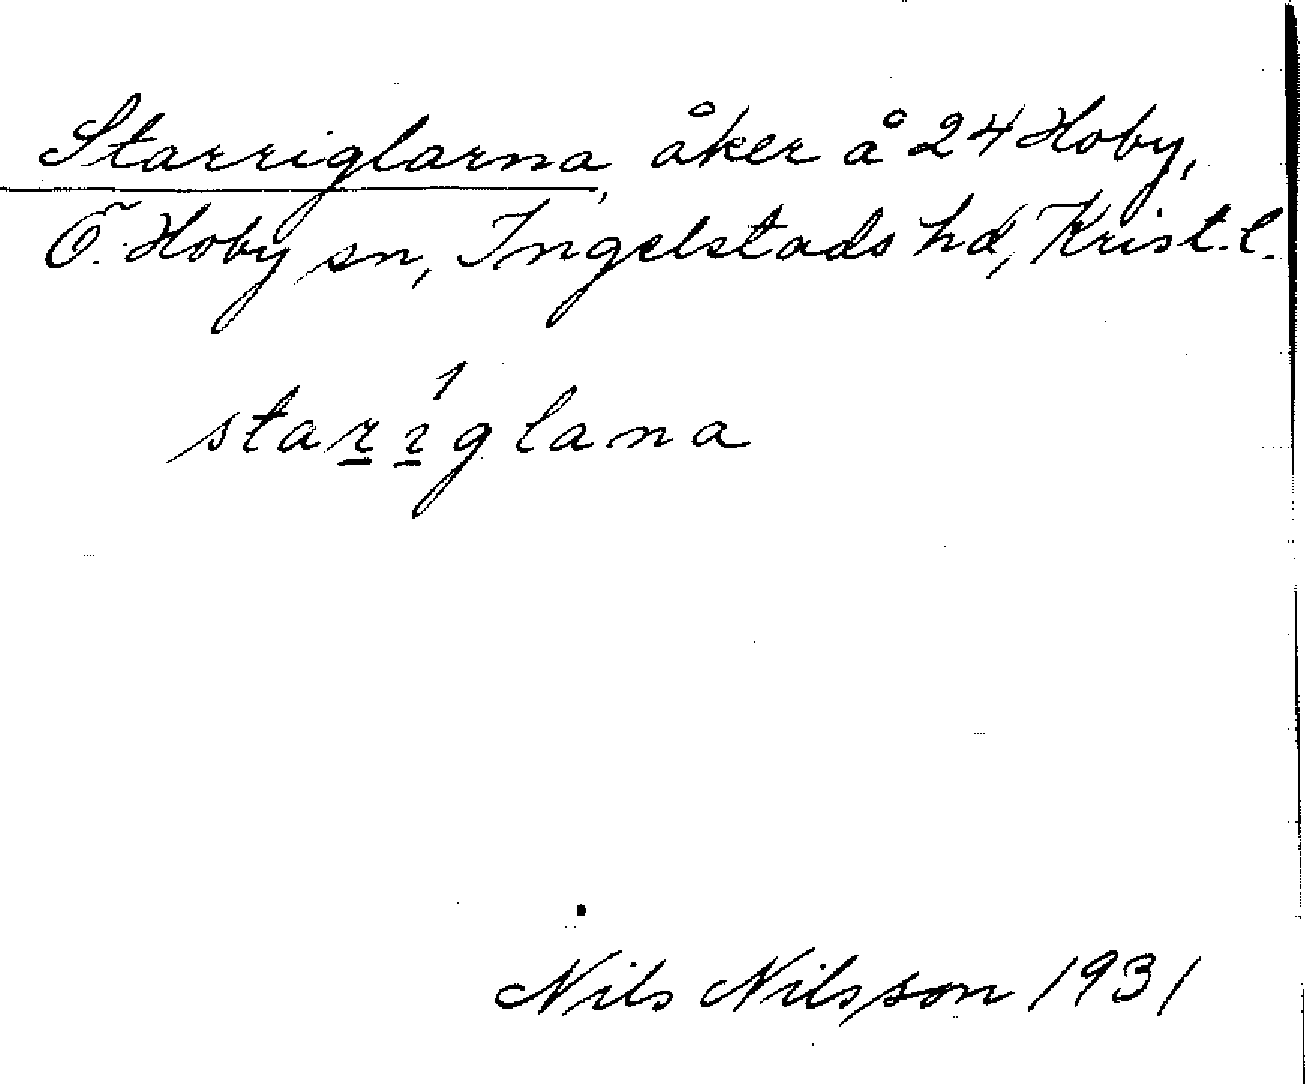 Starriglarna, åker å 24 Hoby,
Ö. Hoby sn, Ingelstads hd, Krist. l.
starıglana
Nils Nilsson 1931